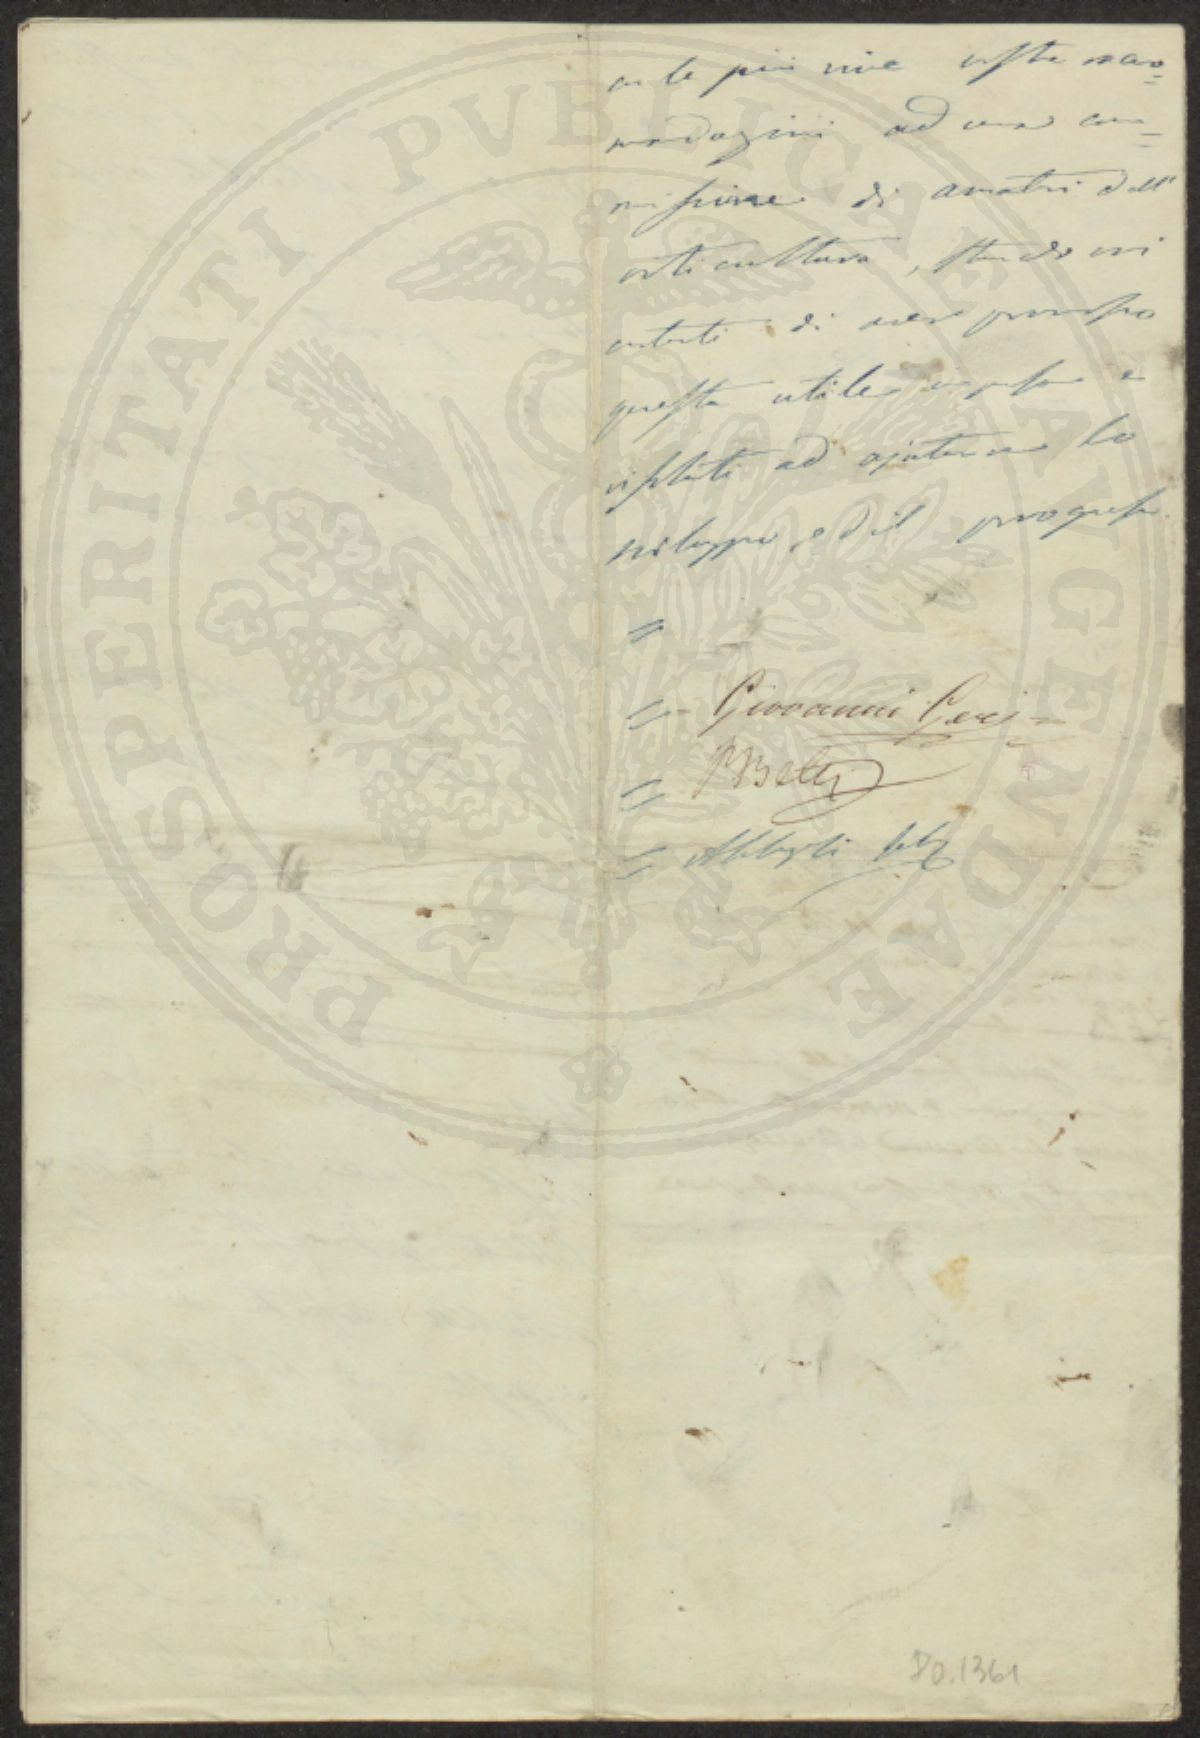 con le più vive vostre racco=
mandazioni ad una com=
missione di amatori dell'
orticultura, stando ivi
contenti di aver promosso
questa utile impresa e
ad ajutarne lo
sviluppo, ed il progresso.
=
= Giovanni Geri =
= PBelli
=
PROSPERITATI PVBLICAE AVGENDAE
Do.1361